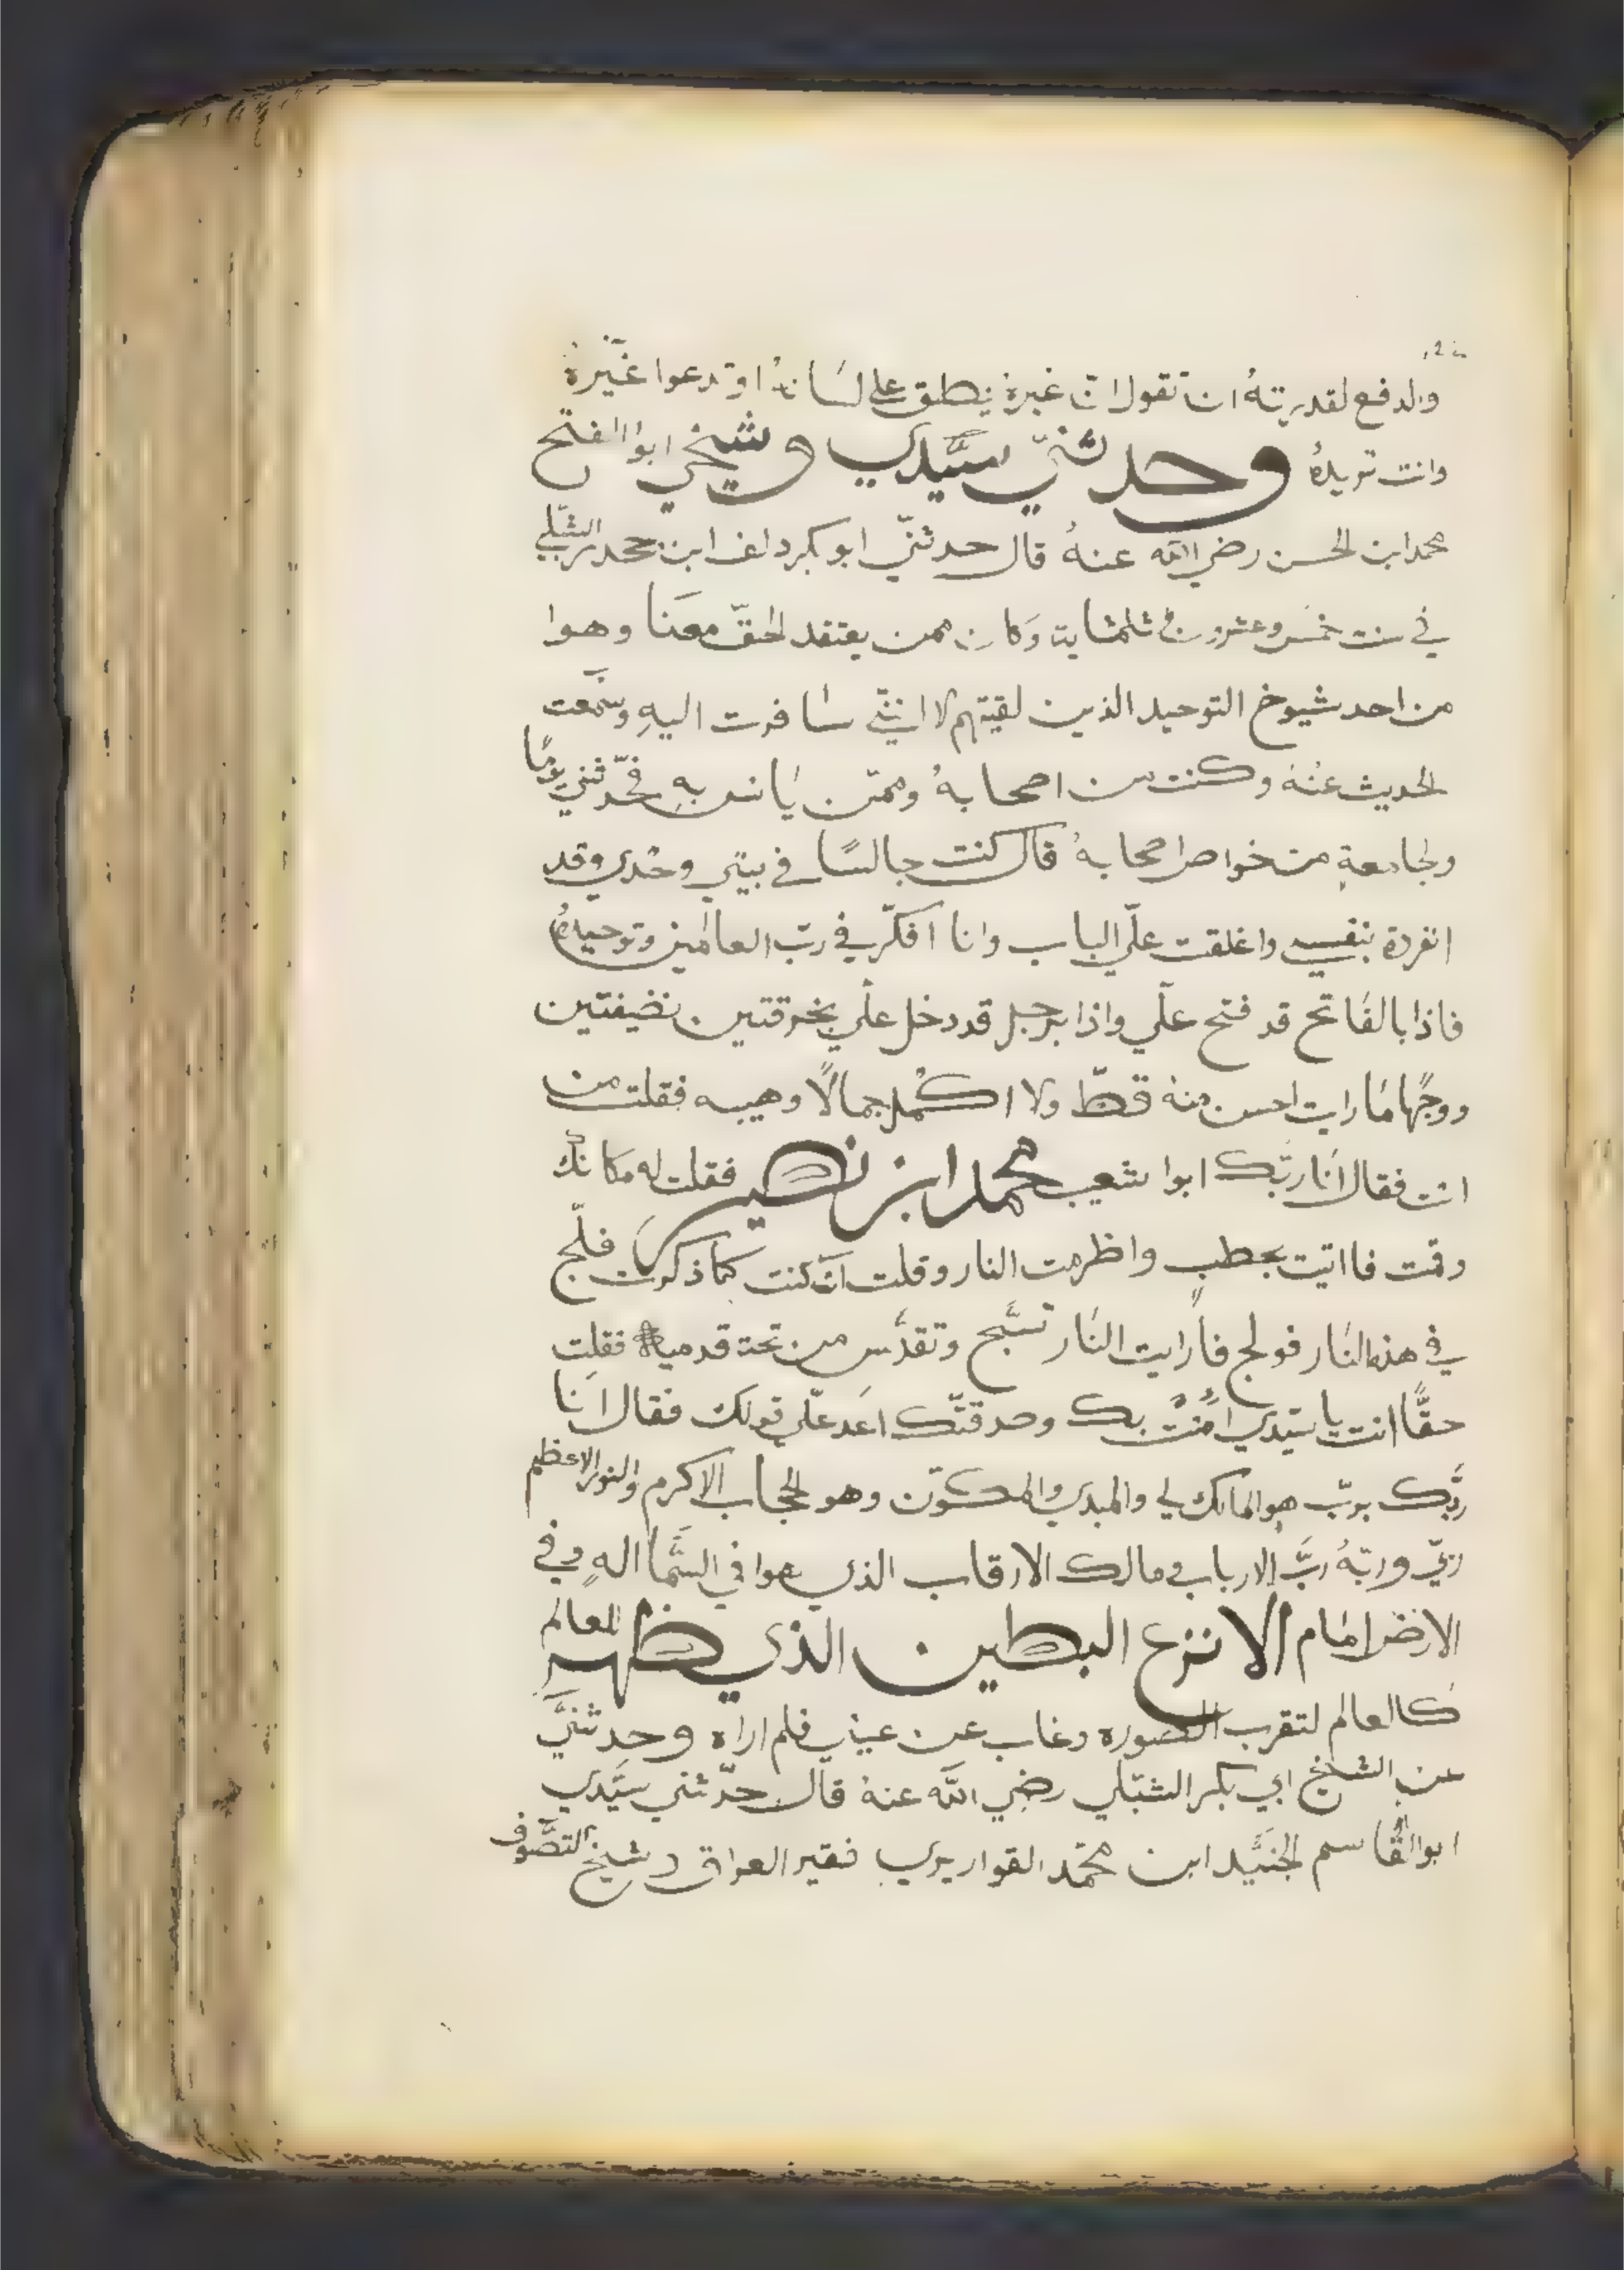 والدفع لقدرتهُ ان تقول انّ غيرهُ ينطق على لسانهُ او تدعوا غيّرهُ
وانت تريدهُ وحدثنيّ سيَّدي وشيخي ابوا الفتح
محمد ابن الحسن رضي الله عنهُ قال حدثنيّ ابو بكر دلف ابن جحدر الشبّلي
في سنت خمس وعشرون وثلثمايت وكان ممن يعتقد الحقّ معَنا وهوا
من احد شيوخ التوحيد الذين لقيتهم لا اننيّ سافرت اليهِ وسَمعت
الحديث عنُهُ وكنت من اصحابهُ وممّن يَانس بهِ فحدّثني يومًا
ولجامعةٍ من خواص اصحابهُ قال كنت جالسًا في بيتي وحُدي وقد
انفردة بنفسي واغلقت علّي الباب وانا افكّر في ربّ العالمين وتوحيدهُ
فاذا بالفَاتح قد فتح علّي واذا برجل قد دخل علّي بخرقتين نضيفتين
ووجًها مَا رايت احسن منهُ قطّ ولا اكُمل جمالًا وهيبه فقلت من
انت فقال انَا ربّك ابوا شعيب محمد ابن نصير فقلت له مكانكُ
وقمت فااتيت بحطبٍ واظرمت النار وقلت انَ كنت كماَ ذكرت فلّج
في هذه النَار فولج فاَرايت النَار تسَّبح وتقدَّس من تحة قدمياه فقلت
حقًّا انت يا سَيّدي امُنتُ بك وصدقتّك اعَد علّي قولك فقال انَا
ربَّك بربّ هو المالك لي والمبدي والمكوّن وهو الحجاب الاكرم والنور الاعظم
ربّي وربّهُ ربَّ الارباب ومالك الارقاب الذي هوا في السَّما الهٍ وفي
الارَض امَام الانزع البطين الذي ظهر للعالم
كَالعالم لتقرب الصوره وغاب عن عيني فلم اراه وحدثنيَّ
عن الشيخ ابي بكر الشبّلي رضي الله عنهُ قال حدّثني سيَّدي
ابوا القَاسم الجنيَّد ابن محمّد القواريري فقير العراق وشيخ التصَّوف